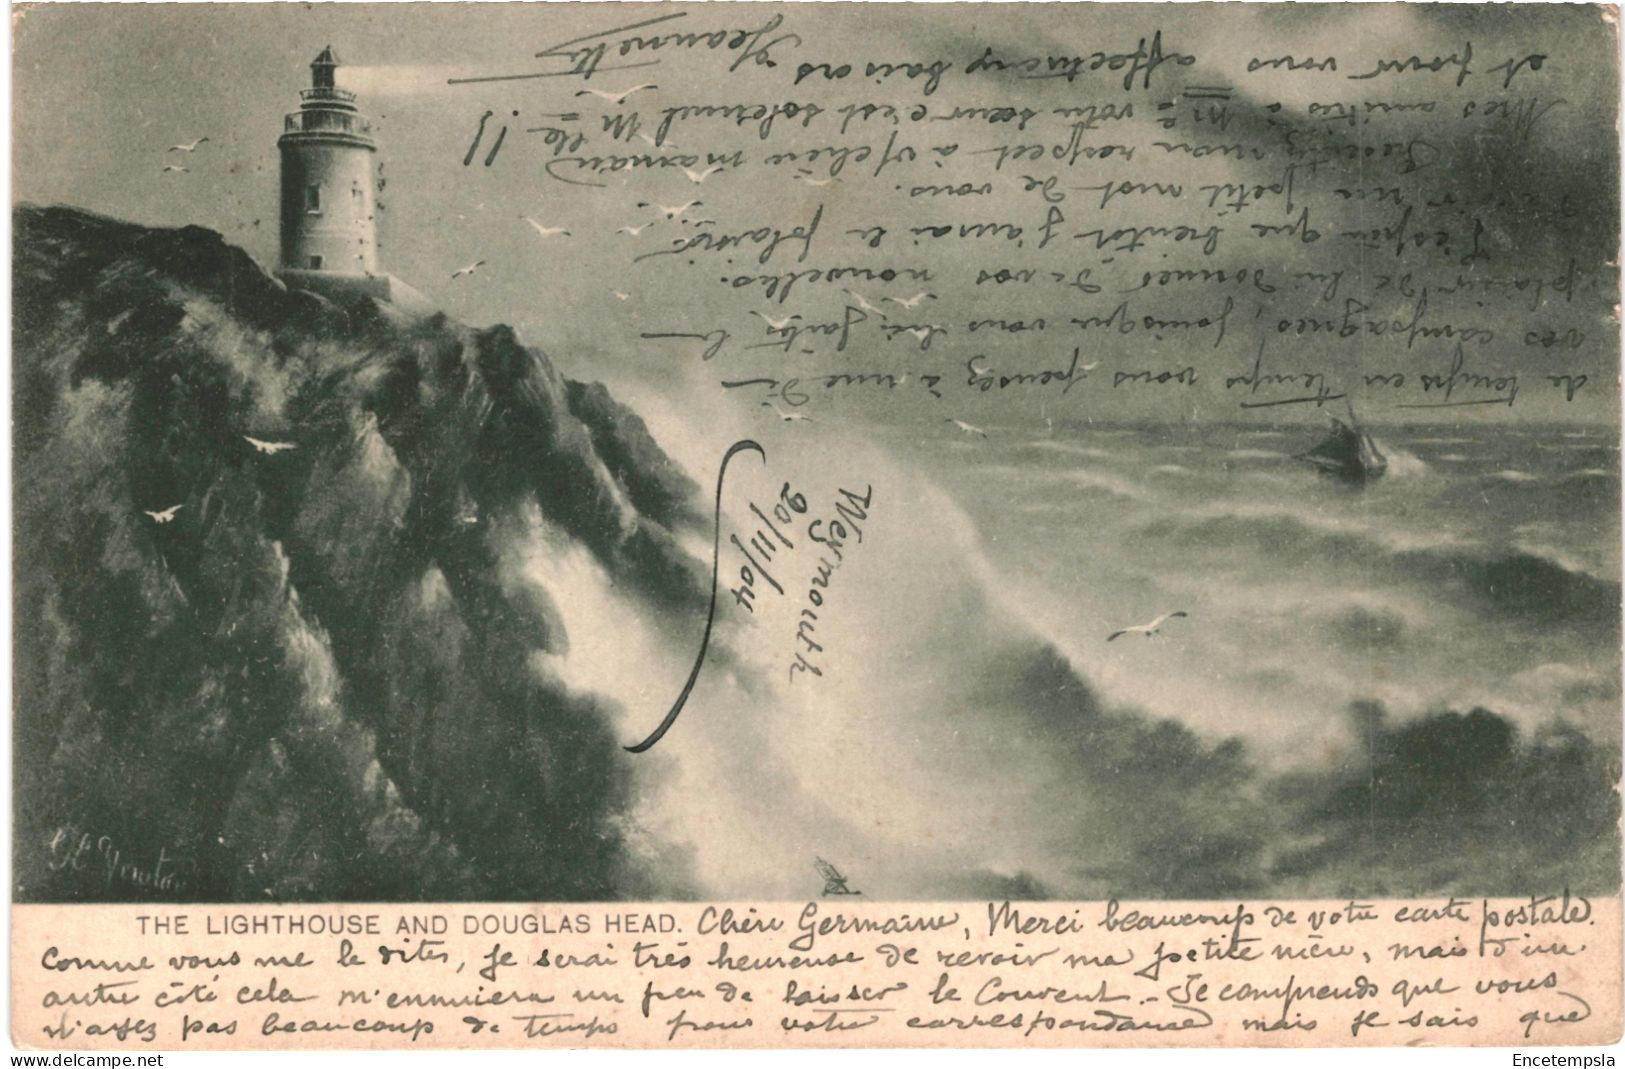 THE LIGHTHOUSE AND DOUGLAS HEAD. Chère Germaine, Merci beaucoup de votre carte postale.
Comme vous me le dites, je serai très heureuse de revoir ma petite mère, mais d'un
autre côté cela m'ennuiera un peu de laisser le Couvent. - Je comprends que vous
n'ayez pas beaucoup de temps pour votre correspondance mais je sais que
de temps en temps vous pensez à une de
vos compagnes, puisque vous lui faites le
plaisir de lui donner de vos nouvelles.
J'espère que bientôt j'aurai le plaisir
un petit mot de vous.
mon respect à v/chère maman
Mes amitiés à Mlle votre sœur c'est solennel Mlle !!
et pour vous affectueux baisers Jeannette
Weymouth
20/11/04
Encetempsla